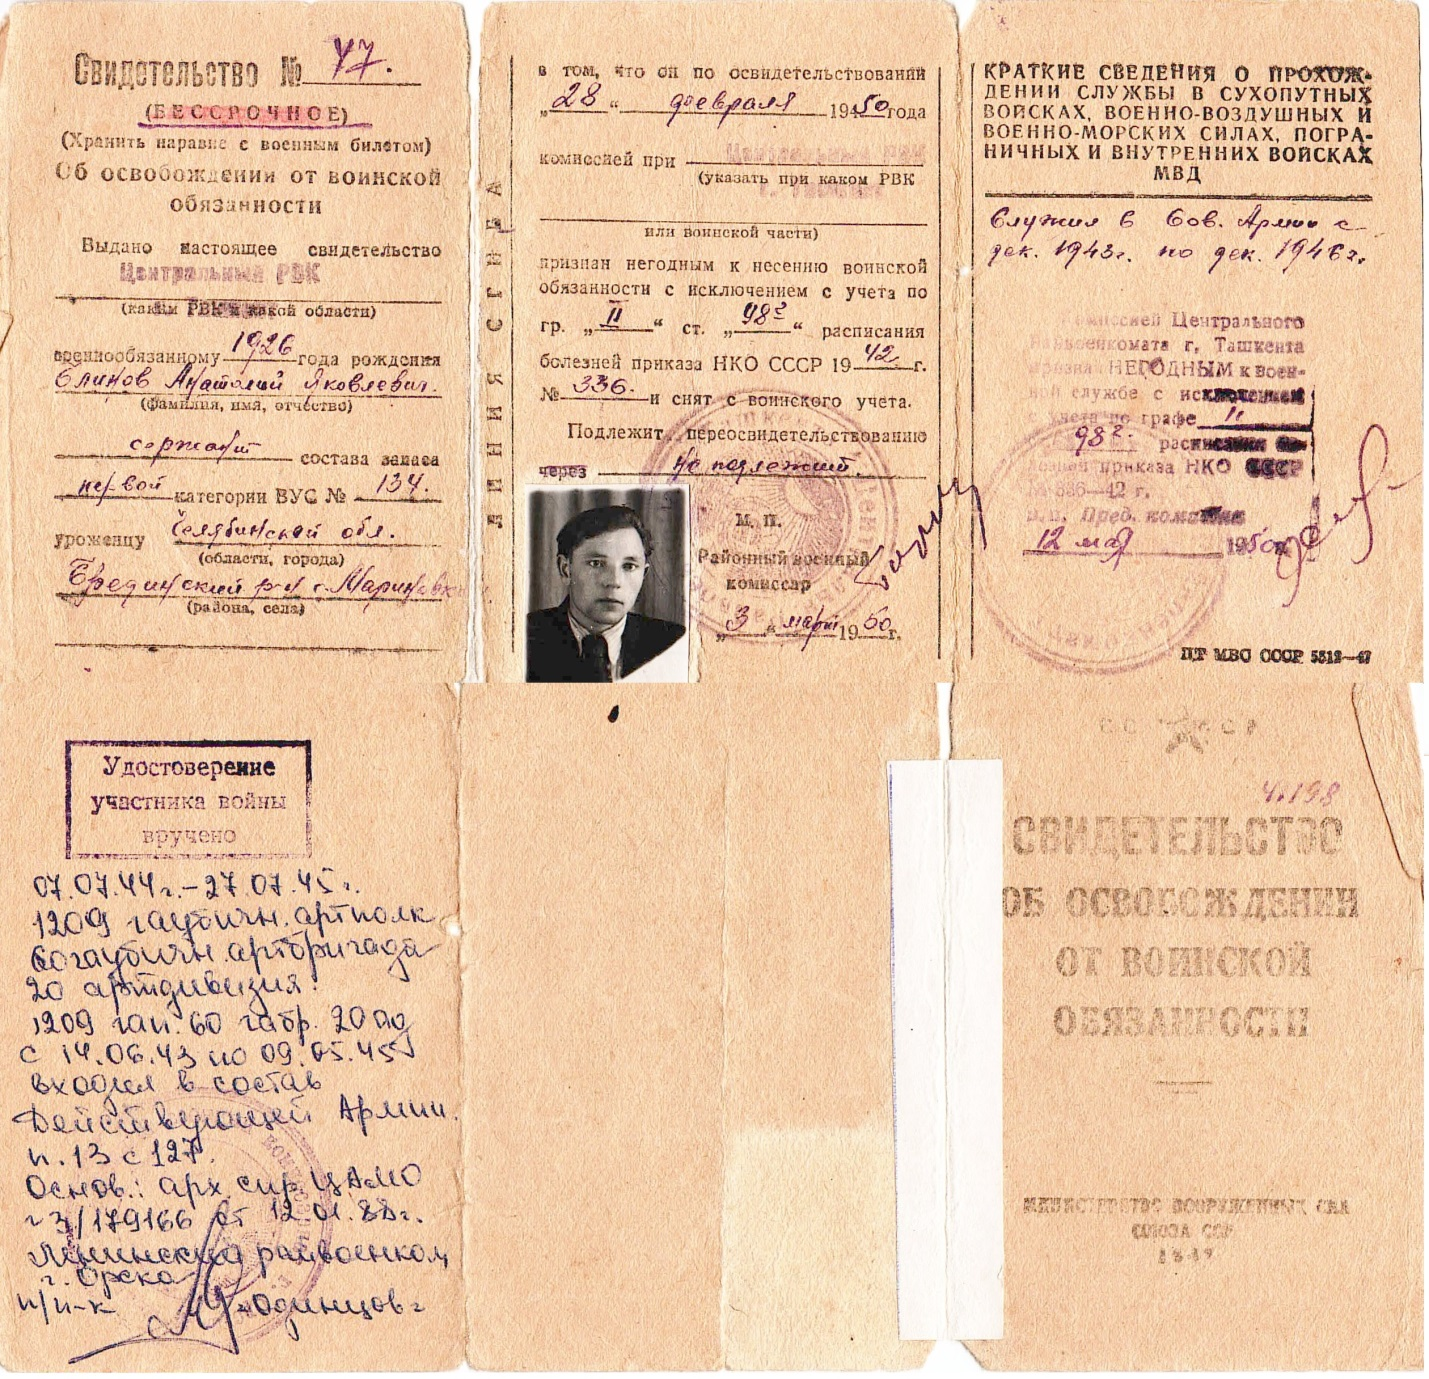 Свидетельство № 47.
(БЕССРОЧНОЕ)
(Хранить наравне с военным билетом)
Об освобождении от воинской
обязанности
Выдано настоящее свидетельство
Центральный РВК
(каким РВК и какой области)
военнообязанному 1926 года рождения
Блинов Анатолий Яковлевич.
(фамилия, имя, отчество)
сержант состава запаса
первой категории ВУС № 134.
уроженцу Челябинской обл.
(области, города)
Брединский р-н с. Мариновка
(района, села)
ЛИНИЯ СГИБА
в том, что он по освидетельствований
„28“ февраля 1950 года
комиссией при Центральный РВК
(указать при каком РВК
или воинской части)
признан негодным к несению воинской
обязанности с исключением с учета по
гр. „II“ ст. „98г“ расписания
болезней приказа НКО СССР 1942 г.
№ 336. и снят с воинского учета.
Подлежит переосвидетельствованию
через не подлежит.
М. П.
Районный военный
комиссар
„3“ март 1950 г.
КРАТКИЕ СВЕДЕНИЯ О ПРОХОЖ-
ДЕНИИ СЛУЖБЫ В СУХОПУТНЫХ
ВОЙСКАХ, ВОЕННО-ВОЗДУШНЫХ И
ВОЕННО-МОРСКИХ СИЛАХ, ПОГРА-
НИЧНЫХ И ВНУТРЕННИХ ВОЙСКАХ
МВД
Служил в Сов. Армии с
дек. 1943г. по дек. 1946г.
Комиссией Центрального
Райвоенкомата г. Ташкента
признан НЕГОДНЫМ к воен-
ной службе с исключением
с учета по графе II
98г. расписания бо-
лезней приказа НКО СССР
№ 336—42 г.
Пред. комиссии
12 мая 1950г.
ПТ МВС СССР 5512—47
Удостоверение
участника войны
вручено
07.07.44г. – 27.07.45г.
1209 гаубичн. артполк
60 гаубичн. артбригада
20 артдивизия.
1209 гап. 60 габр. 20 ад
с 14.06.43 по 09.05.45
входил в состав
Действующей Армии.
п. 13 с 127.
Основ.: арх. спр ЦАМО
№ 3/179166 от 12.01.88г.
Ленинский райвоенком
г. Орска
п/п-к Одинцов
СС СР
Ч.198
СВИДЕТЕЛЬСТВО
ОБ ОСВОБОЖДЕНИИ
ОТ ВОИНСКОЙ
ОБЯЗАННОСТИ
МИНИСТЕРСТВО ВООРУЖЕННЫХ СИЛ
СОЮЗА ССР
1947